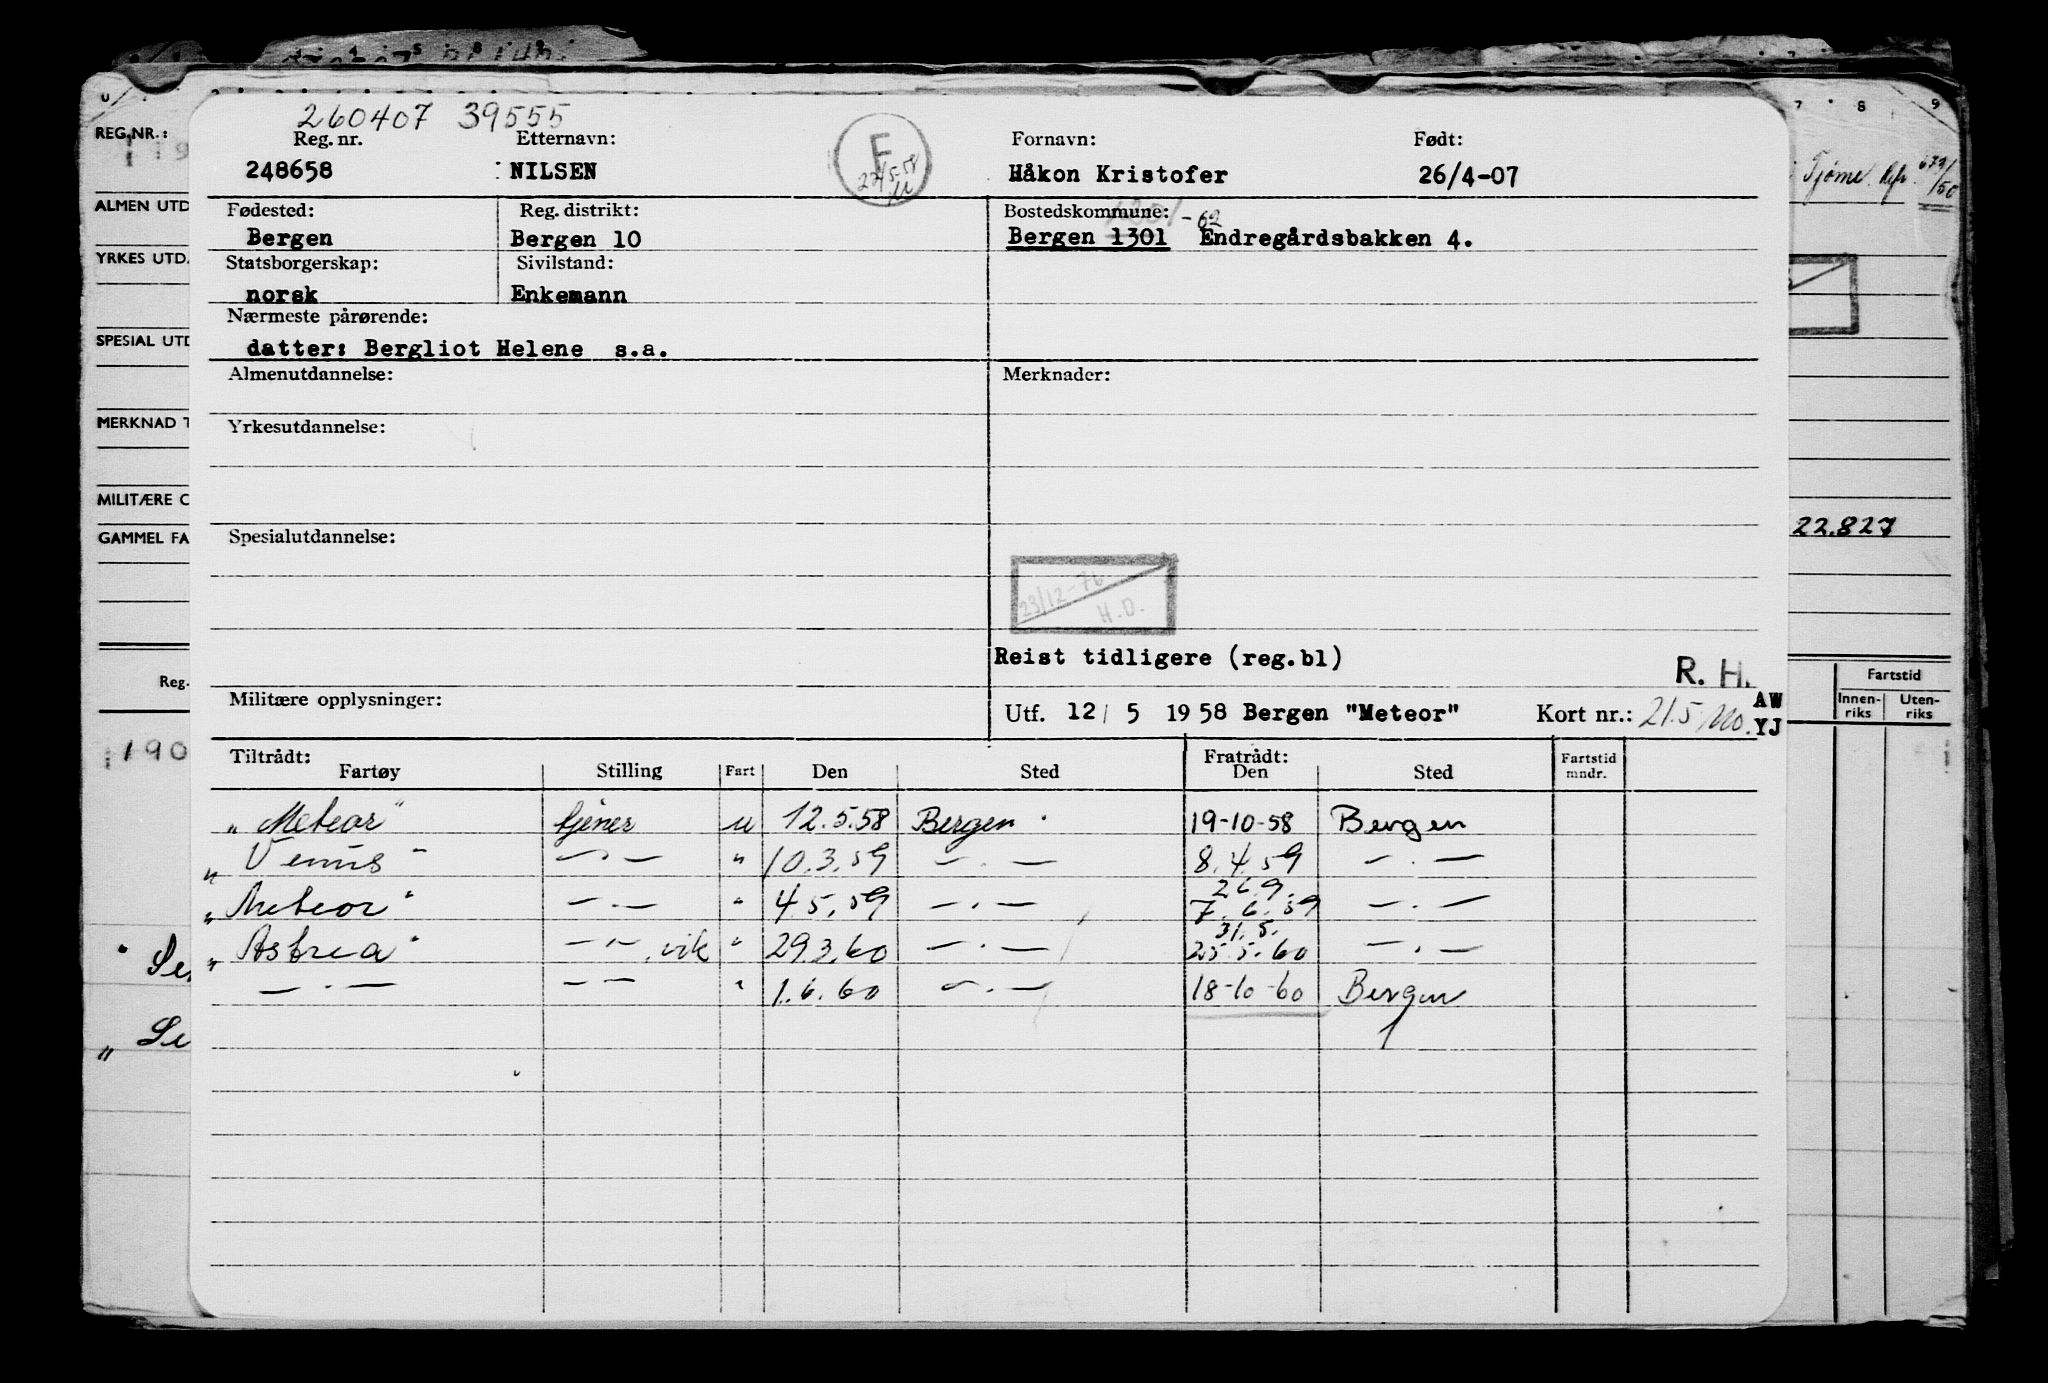 260407 39555
Reg. nr. Etternavn: Fornavn: Født:
248658 NILSEN Håkon Kristofer 26/4-07
F
Fødested: Reg. distrikt: Bostedskommune: -62
Bergen Bergen 10 Bergen 1301 Endregårdsbakken 4.
Statsborgerskap: Sivilstand:
norsk Enkemann
Nærmeste pårørende:
datter: Bergliot Helene s.a.
Almenutdannelse: Merknader:
Yrkesutdannelse:
Spesialutdannelse:
23/12-76
H.D.
Reist tidligere (reg.bl)
R. H.
Militære opplysninger: Utf. 12/5 1958 Bergen "Meteor" Kort nr.: 21.5 AW
YJ
Tiltrådt: Fratrådt:
Fartøy Stilling Fart Den Sted Den Sted Fartstid mndr.
"Meteor" tjener u 12.5.58 Bergen 19-10-58 Bergen
"Venus" — · — " 10.3.59 — · — 8.4.59 — · —
26.9.
"Meteor" — · — " 4.5.59 — · — 7.6.59 — · —
31.5.
"Astrea" — · — vik " 29.3.60 — · — 25.5.60 — · —
— · — — — " 1.6.60 — · — 18-10-60 Bergen
REG.NR.:
ALMEN UTD
YRKES UTD.
SPESIAL UTD
MERKNAD T
MILITÆRE O
GAMMEL FA
Reg.
190
7 8 9
Tjøme 679/50
22.827
Fartstid
Innen-riks Uten-riks